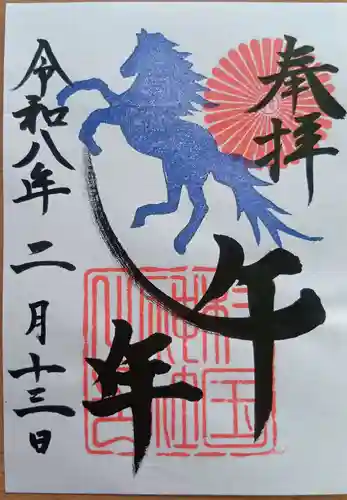 奉拝
午年
令和八年二月十三日